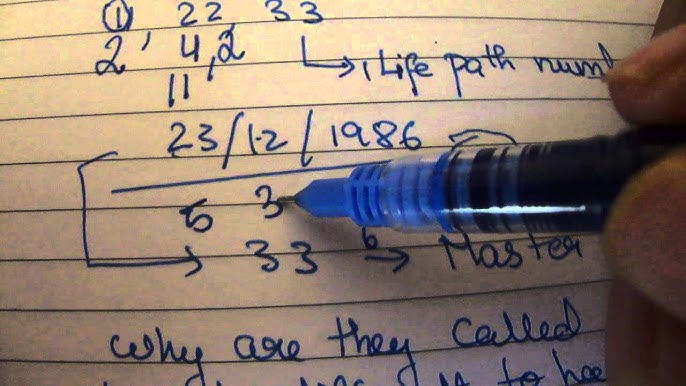 ① 22, 33
2, 4,2 ↳ 1 Life path num
11
23/12/1986
5 3
→ 33 6→ Master
Why are they called
to